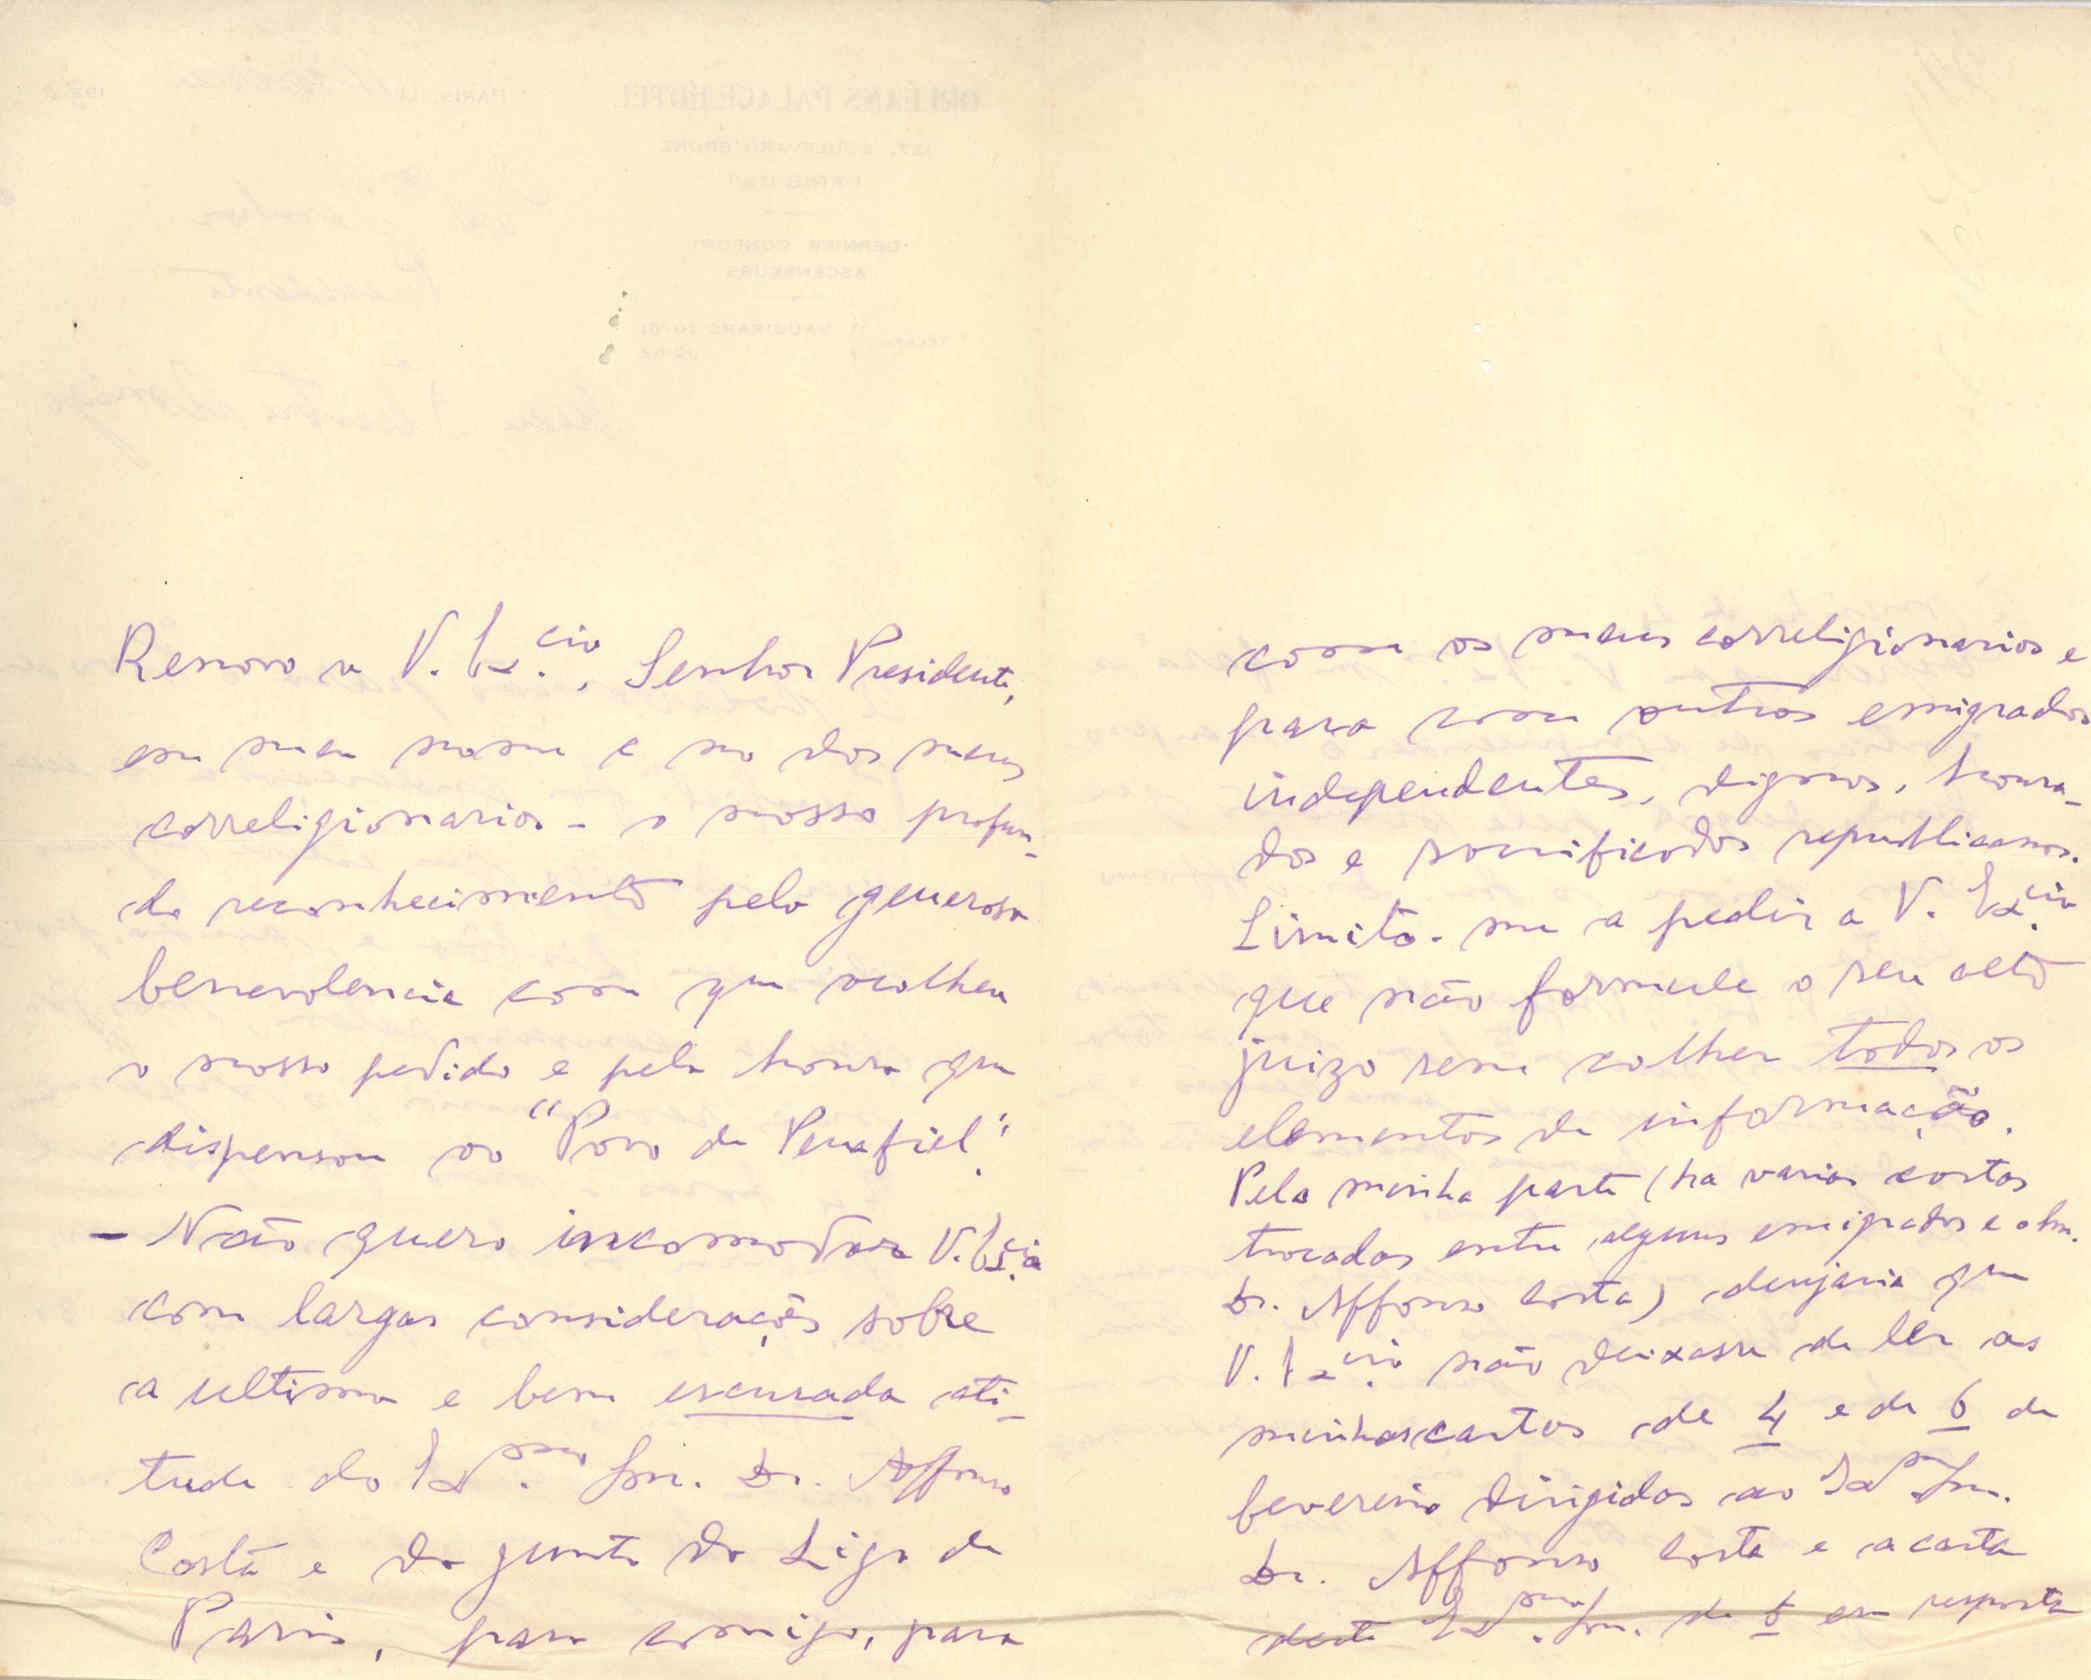 Renovo a V. Ex.cia, Senhor Presidente,
em meu nome e no dos meus
correligionarios - o nosso profun-
do reconhecimento pela generosa
benevolencia com que acolheu
o nosso pedido e pela honra que
dispensou ao "Povo de Penafiel".
- Não quero incomodar V. Ex.cia
com largas considerações sobre
a ultima e bem escusada ati-
tude do Ex.mo Snr. Dr. Affonso
Costa e da junta da Liga de
Paris, para comigo, para
com os meus correligionarios e
para com outros emigrados
independentes, dignos, honra-
dos e sacrificados republicanos.
Limito-me a pedir a V. Ex.cia
que não formule o seu alto
juizo sem colher todos os
elementos de informação.
Pela minha parte (ha varias cartas
trocadas entre alguns emigrados e o Snr.
Dr. Affonso Costa) desejaria que
V. Ex.cia não deixasse de ler as
minhas cartas de 4 e de 6 de
fevereiro dirigidas ao Ex.mo Snr.
Dr. Affonso Costa e a carta
deste Ex.mo Snr. de 5 em resposta